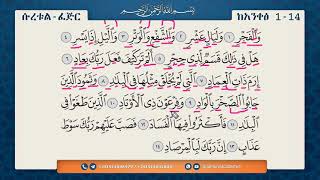 ሱረቱል - ፈጅር
بِسْمِ اللَّهِ الرَّحْمَٰنِ الرَّحِيمِ
ከአንቀፅ 1 - 14
وَالْفَجْرِ ١ وَلَيَالٍ عَشْرٍ ٢ وَالشَّفْعِ وَالْوَتْرِ ٣ وَاللَّيْلِ إِذَا يَسْرِ ٤
هَلْ فِي ذَٰلِكَ قَسَمٌ لِّذِي حِجْرٍ ٥ أَلَمْ تَرَ كَيْفَ فَعَلَ رَبُّكَ بِعَادٍ ٦
إِرَمَ ذَاتِ الْعِمَادِ ٧ الَّتِي لَمْ يُخْلَقْ مِثْلُهَا فِي الْبِلَادِ ٨ وَثَمُودَ الَّذِينَ
جَابُوا الصَّخْرَ بِالْوَادِ ٩ وَفِرْعَوْنَ ذِي الْأَوْتَادِ ١٠ الَّذِينَ طَغَوْا فِي
الْبِلَادِ ١١ فَأَكْثَرُوا فِيهَا الْفَسَادَ ١٢ فَصَبَّ عَلَيْهِمْ رَبُّكَ سَوْطَ
عَذَابٍ ١٣ إِنَّ رَبَّكَ لَبِالْمِرْصَادِ ١٤